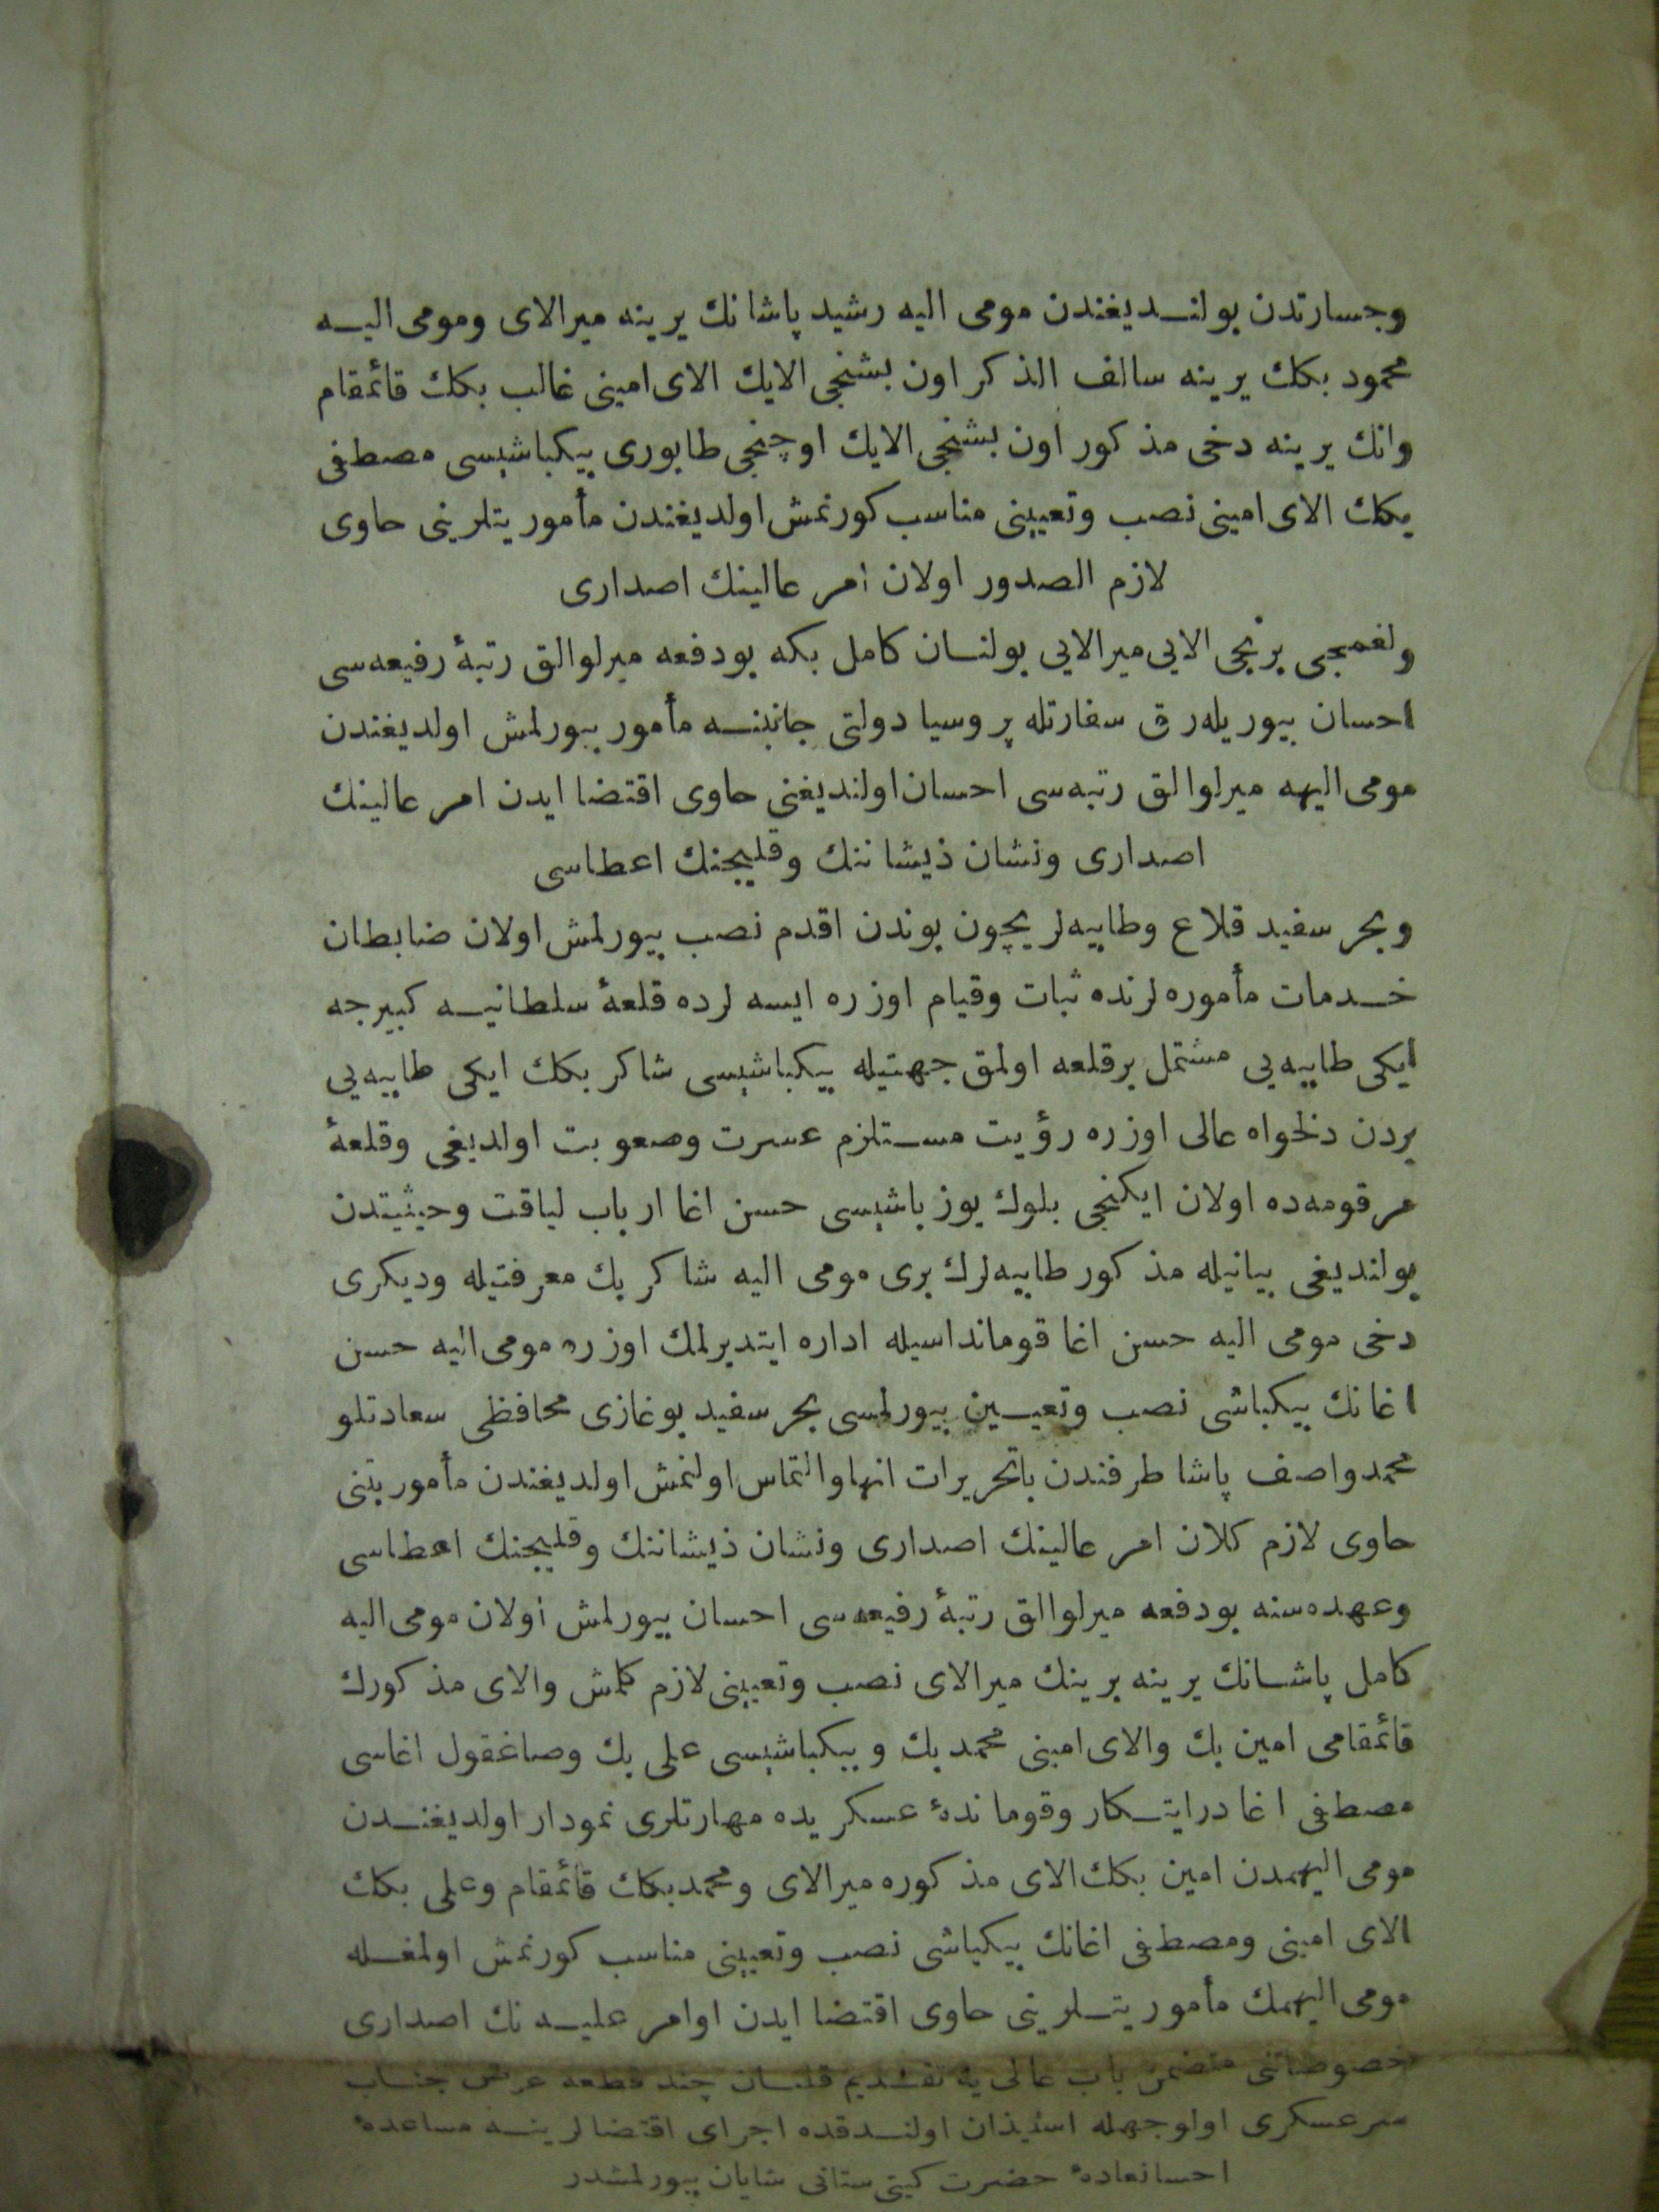 وجسارتدن بولنـديغندن مومى اليه رشيد پاشانك يرينه ميرالاى ومومى اليـه
محمود بكك يرينه سالف الذكر اون بشنجى الايك الاى امينى غالب بكك قائمقام
وانك يرينه دخى مذكور اون بشنجى الايك اوچنجى طابورى بيكباشيسى مصطفى
بكك الاى امينى نصب وتعيينى مناسب كورنمش اولديغندن مأموريتلرينى حاوى
لازم الصدور اولان امر عالينك اصدارى
ولغمجى برنجى الايى ميرالايى بولنـان كامل بكه بودفعه ميرلوالق رتبهٔ رفيعه‌سى
احسان بيوريله‌رق سفارتله پروسيا دولتى جانبنـه مأمور بيورلمش اولديغندن
مومى اليهه ميرلوالق رتبه‌سى احسان اولنديغنى حاوى اقتضا ايدن امر عالينك
اصدارى ونشان ذيشاننك وقليجنك اعطاسى
وبحر سفيد قلاع وطابيه‌لريچون بوندن اقدم نصب بيورلمش اولان ضابطان
خـدمات مأموره‌لرنده ثبات وقيام اوزره ايسه لرده قلعهٔ سلطانيـه كبيرجه
ايكى طابيه‌يى مشتمل برقلعه اولمق جهتيله بيكباشيسى شاكر بكك ايكى طابيه‌يى
بردن دلخواه عالى اوزره رؤيت مستلزم عسرت وصعوبت اولديغى وقلعهٔ
مرقومه‌ده اولان ايكنجى بلوك يوزباشيسى حسن اغا ارباب لياقت وحيثيتدن
بولنديغى بيانيله مذكور طابيه‌لرك برى مومى اليه شاكر بك معرفتيله وديكرى
دخى مومى اليه حسن اغا قومانداسيله اداره ايتديرلمك اوزره مومى اليه حسن
اغانك بيكباشى نصب وتعيـين بيورلمسى بحر سفيد بوغازى محافظى سعادتلو
محمد واصف پاشا طرفندن باتحريرات انها والتماس اولنمش اولديغندن مأموريتنى
حاوى لازم كلان امر عالينك اصدارى ونشان ذيشاننك وقليجنك اعطاسى
وعهده‌سنه بودفعه ميرلوالق رتبهٔ رفيعه‌سى احسان بيورلمش اولان مومى اليه
كامل پاشـانك يرينه برينك ميرالاى نصب وتعيينى لازم كلمش والاى مذكورك
قائمقامى امين بك والاى امينى محمد بك وبيكباشيسى على بك وصاغقول اغاسى
مصطفى اغا درايتـكار وقوماندهٔ عسكريده مهارتلرى نمودار اولديغنـدن
مومى اليهمدن امين بكك الاى مذكوره ميرالاى ومحمد بكك قائمقام وعلى بكك
الاى امينى ومصطفى اغانك بيكباشى نصب وتعيينى مناسب كورنمش اولمغـله
مومى اليهمك مأموريتـلرينى حاوى اقتضا ايدن اوامر عليـه نك اصدارى
خصوصاتنى متضمن باب عالى يه تقـديم قلنـان چند قطعه عرض جنـاب
سرعسكرى اولوجهله استيذان اولنـدقده اجراى اقتضالرينـه مساعدهٔ
احسانعادهٔ حضرت كيتى ستانى شايان بيورلمشدر